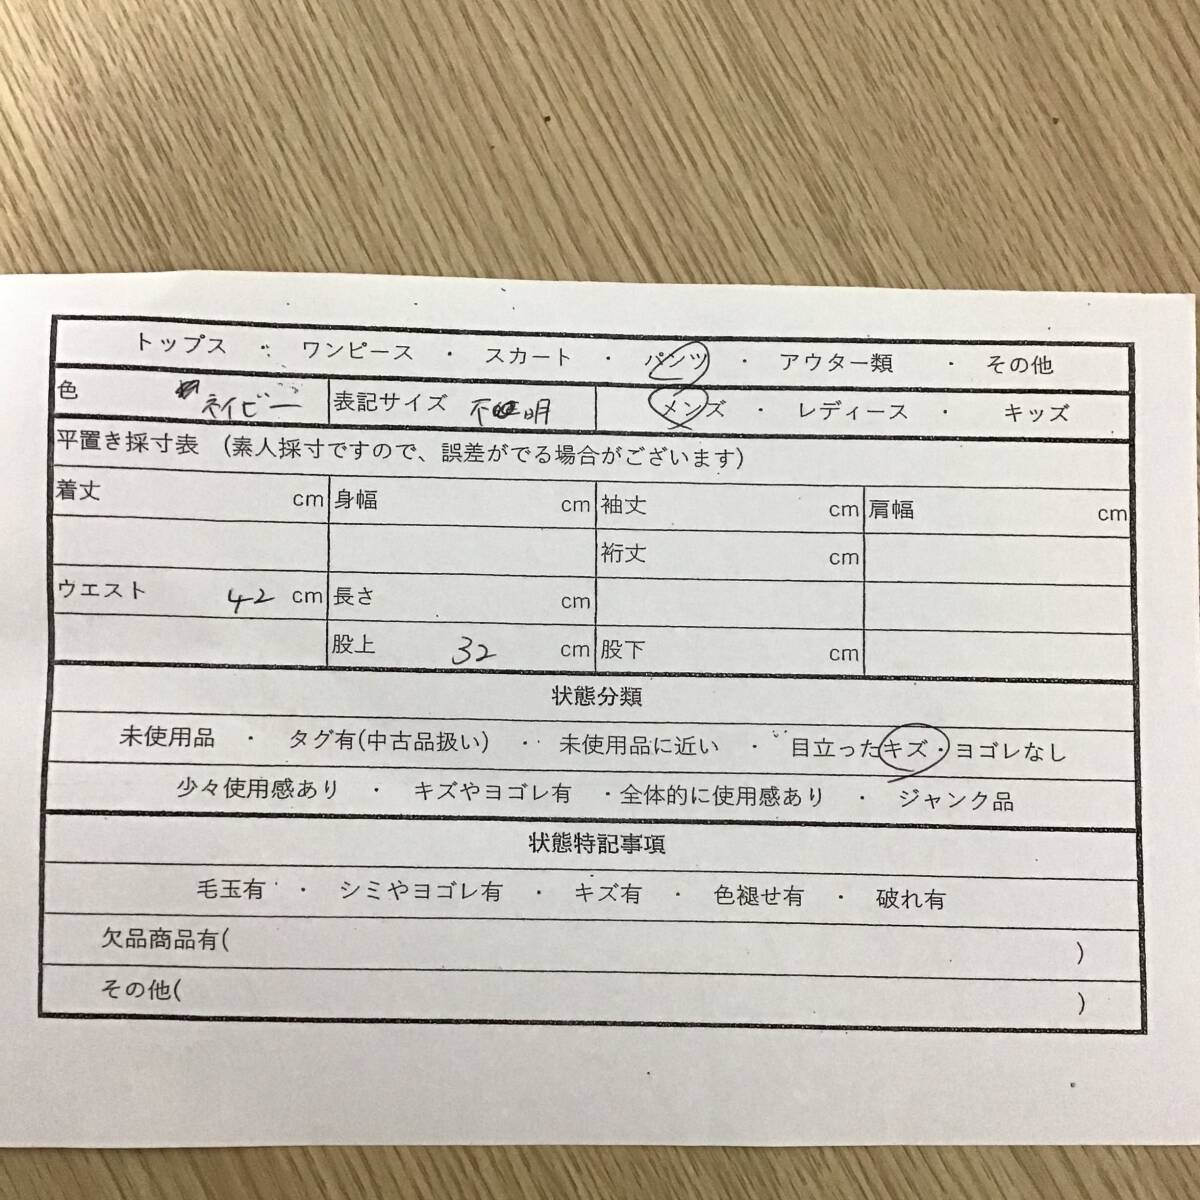 トップス ・ ワンピース ・ スカート ・ パンツ ・ アウター類 ・ その他
色 ネイビー 表記サイズ 不明 メンズ ・ レディース ・ キッズ
平置き採寸表 (素人採寸ですので、誤差がでる場合がございます)
着丈 cm 身幅 cm 袖丈 cm 肩幅 cm
裄丈 cm
ウエスト 42 cm 長さ cm
股上 32 cm 股下 cm
状態分類
未使用品 ・ タグ有(中古品扱い) ・ 未使用品に近い ・ 目立ったキズ・ヨゴレなし
少々使用感あり ・ キズやヨゴレ有 ・全体的に使用感あり ・ ジャンク品
状態特記事項
毛玉有 ・ シミやヨゴレ有 ・ キズ有 ・ 色褪せ有 ・ 破れ有
欠品商品有( )
その他( )